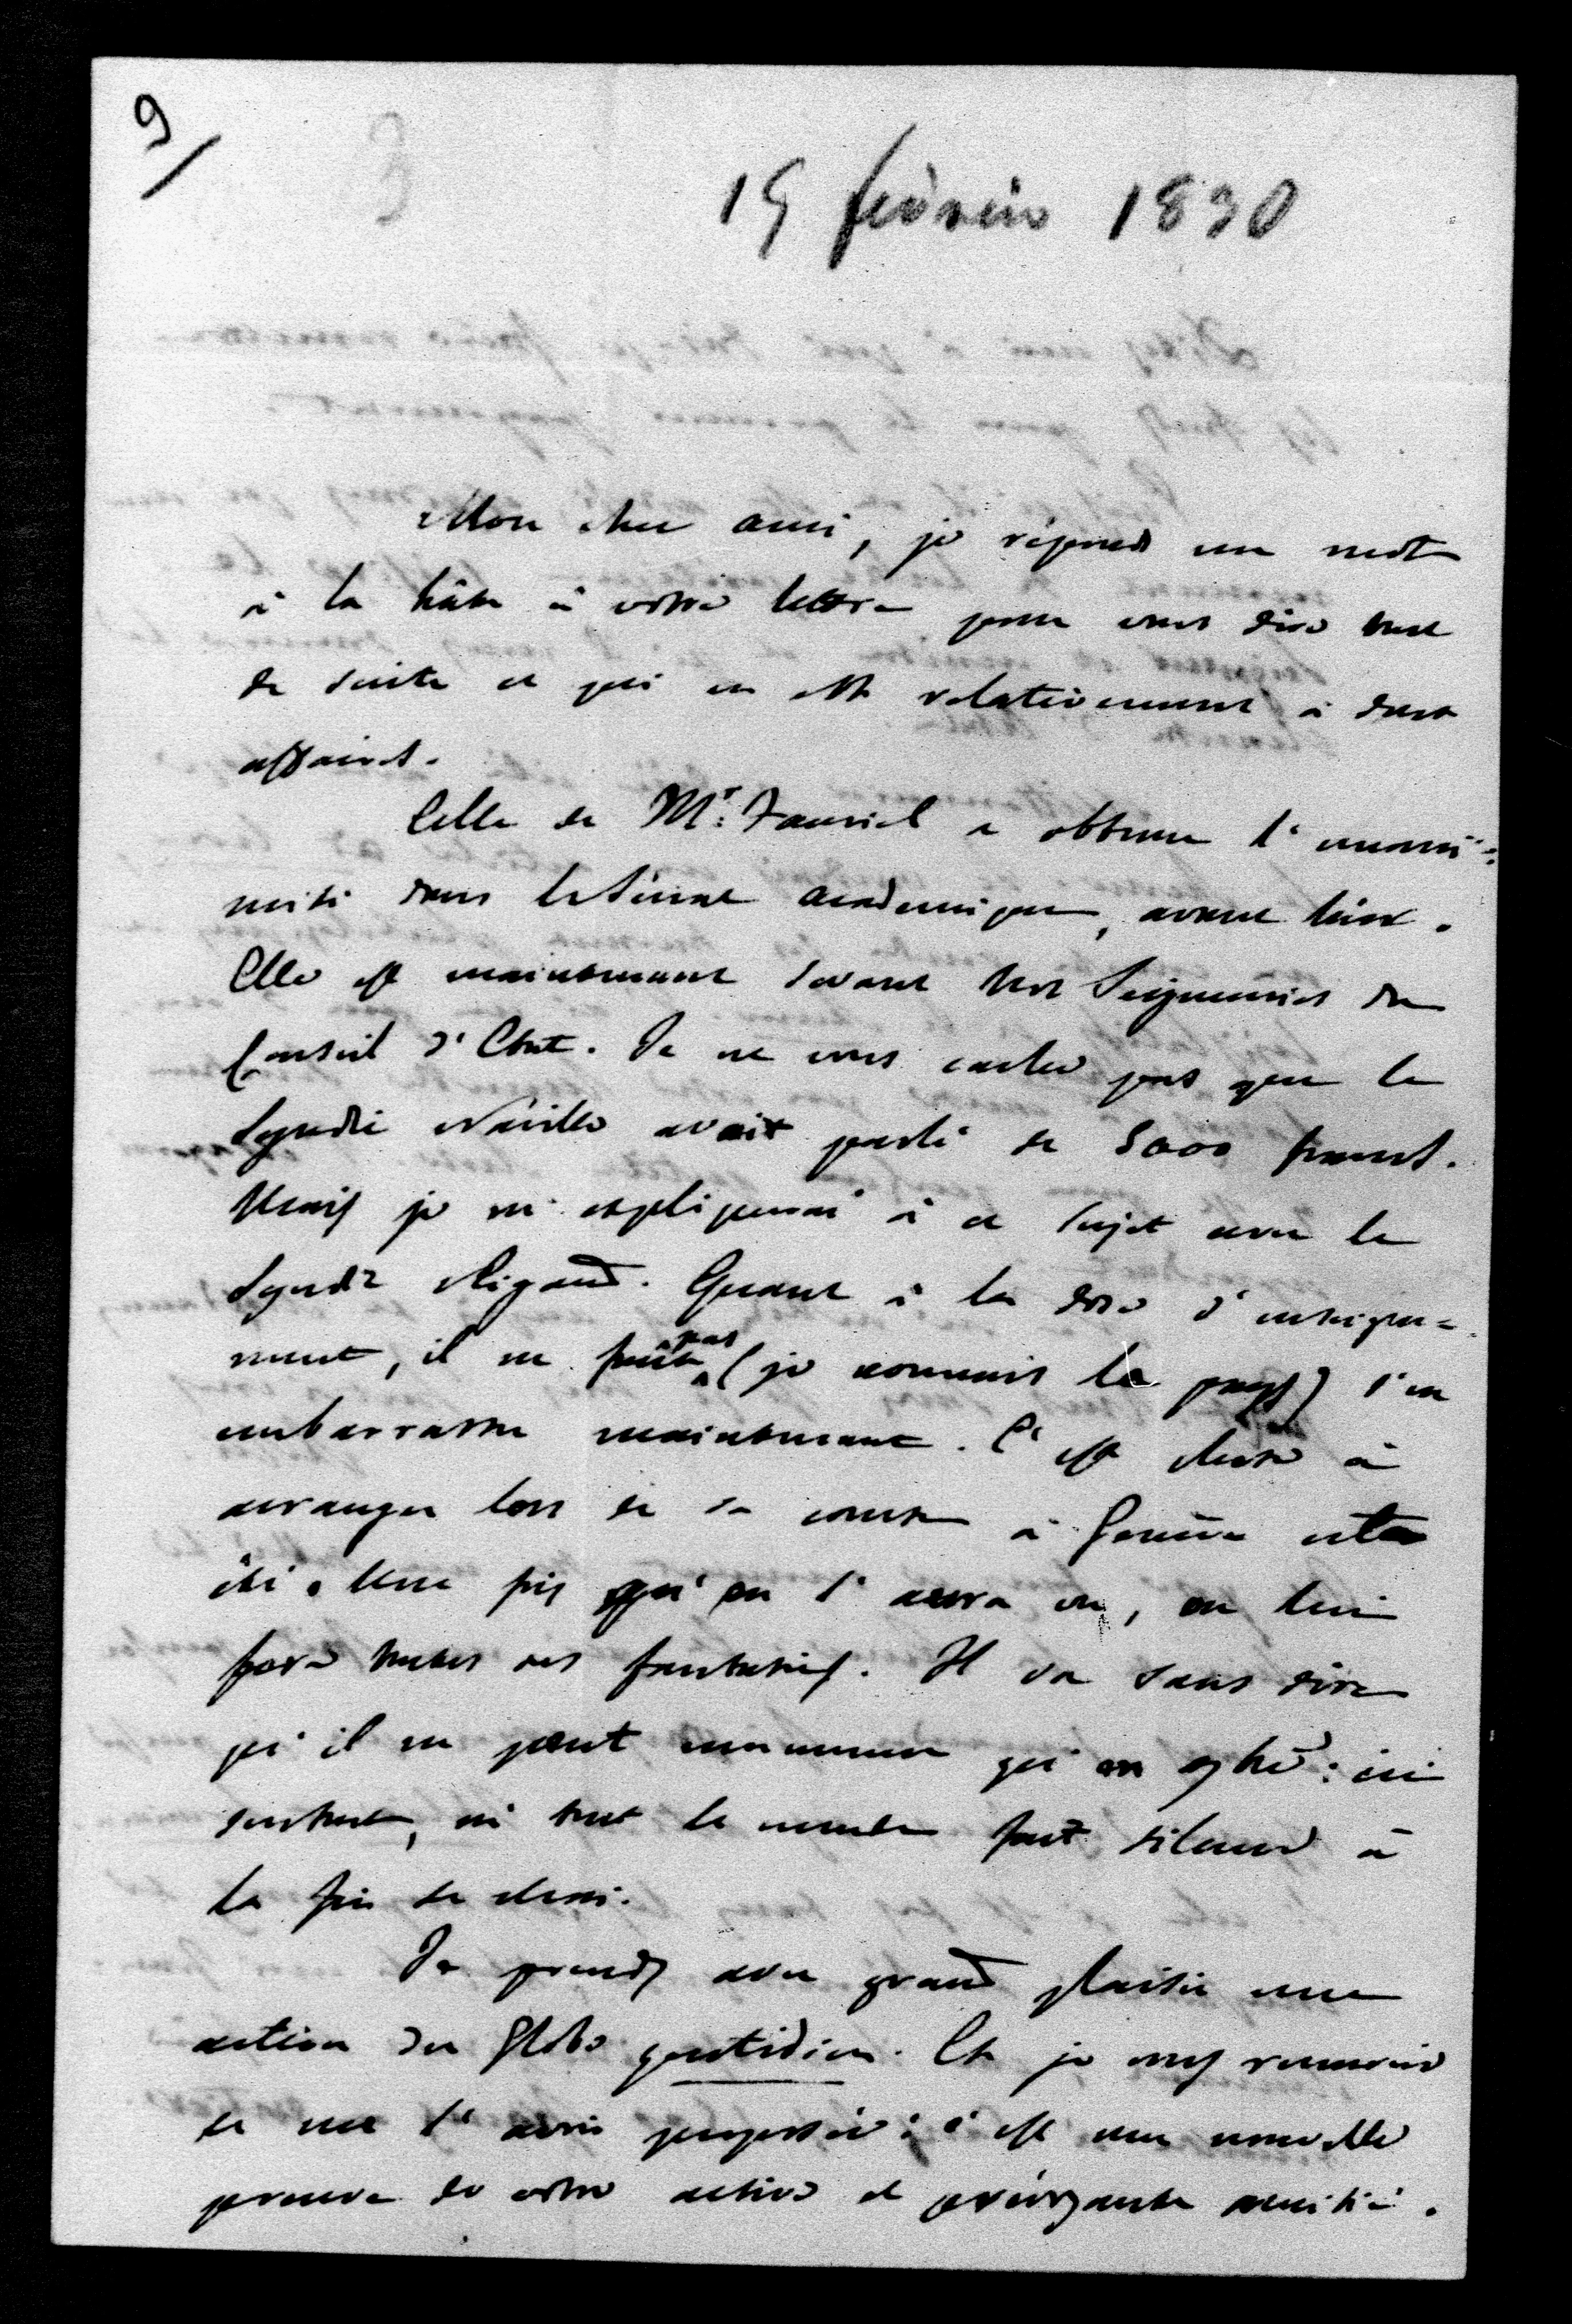 9/
15 février 1830
Mon cher ami, je réponds un mot
à la hâte à votre lettre pour vous dire tout
de suite ce qui en est relativement à deux
affaires.
Celle de Mr. Fauriel a obtenu l'unani=
mité dans le Sénat académique, avant hier.
Elle est maintenant devant Nos Seigneuries du
Conseil d'Etat. Je ne vous cache pas que le
Syndic Naville avait parlé de 5000 francs.
Mais je m'expliquerai à ce sujet avec le
Syndic Rigaud. Quant à la dose d'enseigne=
ment, il ne faut pas (je connais le pays) s'en
embarrasser maintenant. C'est chose à
arranger lors de sa course à Genève cet
été. Une fois qu'on l'aura vu, on lui
fera toutes ses fantaisies. Il va sans dire
qu'il ne peut commencer qu'en 9bre: ici
surtout, où tout le monde fait silence à
la fin de
Je prends avec grand plaisir une
action du Globe quotidien. Et je vous remercie
de me l'avoir proposée: c'est une nouvelle
preuve de votre active et prévoyante amitié.